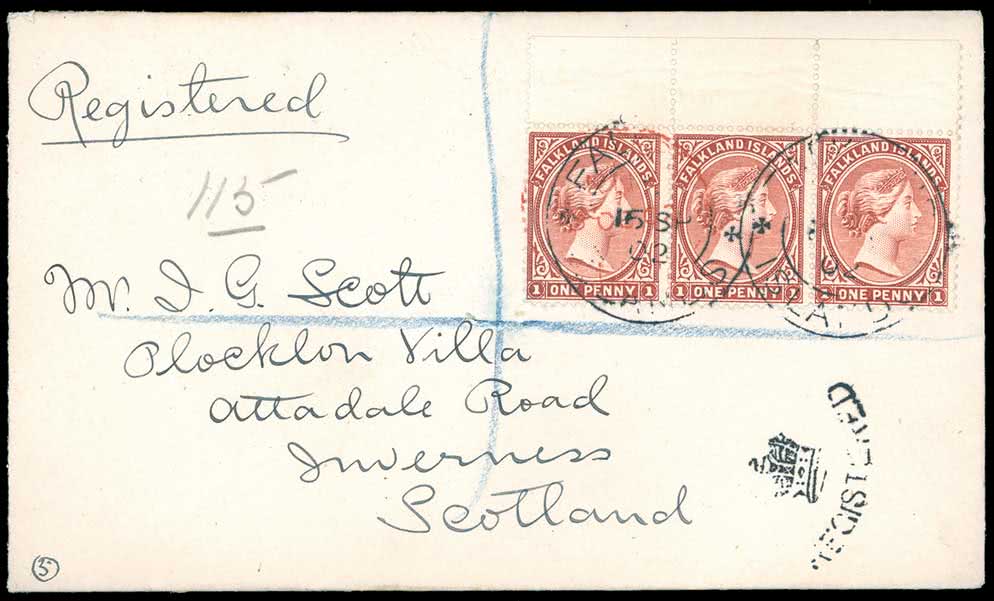 Registered
115
FALKLAND ISLANDS FALKLAND ISLANDS FALKLAND ISLANDS
15 SP
02 02
1 ONE PENNY 1 1 ONE PENNY 1 1 ONE PENNY 1
Mr. I. G. Scott
Plockton Villa
Attadale Road
Inverness
Scotland
REGISTERED
5